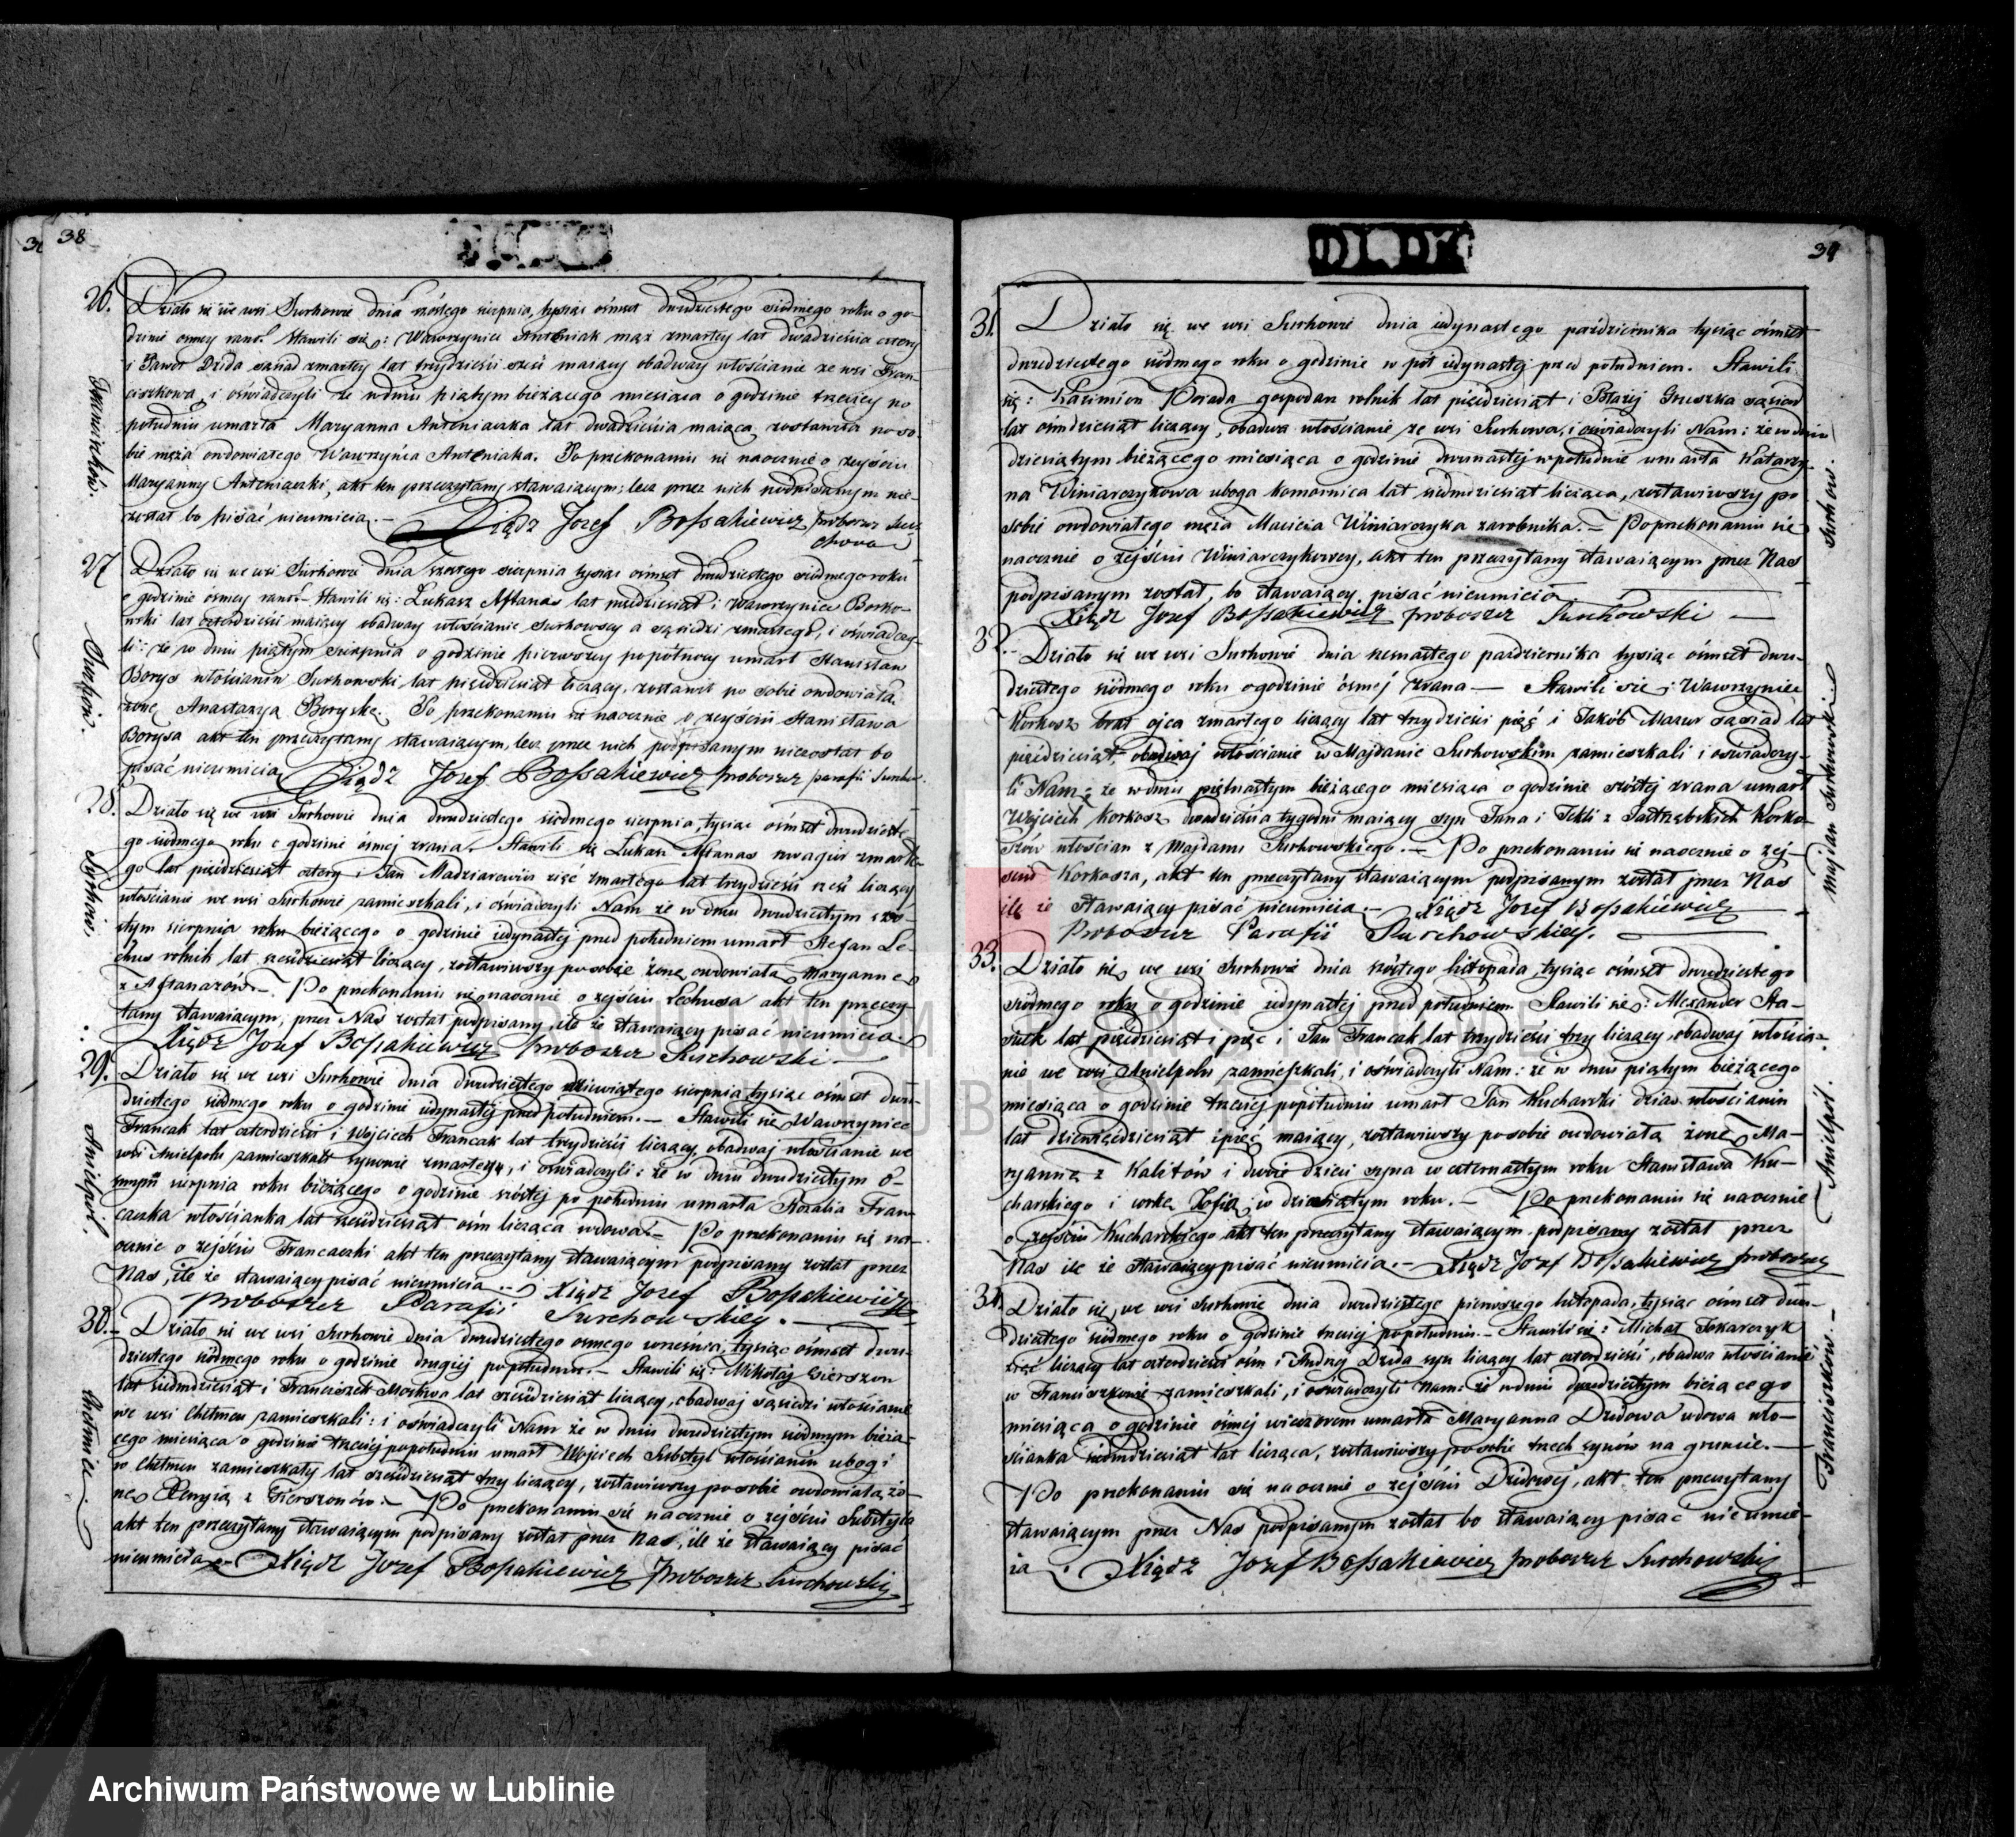 38
26.
Działo się we wsi Surhowie dnia szóstego sierpnia, tysiąc ośmset dwudziestego siódmego roku o go-
dzinie osmey rano. Stawili się: Wawrzyniec Anteniak mąż zmarłey lat dwadzieścia cztery
i Paweł Dzida sąsiad zmarłey lat trzydzieści sześć maiący obadway włościanie ze wsi Fran-
ciszkowa, i oświadczyli że w dniu piątym bieżącego miesiąca o godzinie trzeciey po
południu umarła Maryanna Anteniaczka lat dwadzieścia maiąca, zostawiła po so-
bie męża owdowiałego Wawrzyńca Anteniaka. Po przekonaniu się naocznie o zeyściu
Maryanny Anteniaczki, akt ten przeczytany stawaiącym; lecz przez nich podpisanym nie-
został bo pisać nieumieią. — Xiądz Jozef Bossakiewicz proboszcz Sur-
chowa
Franciszków.
27
Działo się we wsi Surhowie dnia szostego sierpnia tysiąc ośmset dwudziestego siódmego roku
o godzinie ósmey rano. — Stawili się: Łukasz Aftanas lat pięćdziesiąt i Wawrzyniec Borko-
wski lat czterdzieści maiący obadway włościanie Surhowscy a sąsiedzi zmarłego, i oświadczy-
li: że w dniu piątym sierpnia o godzinie pierwszey po północy umarł Stanisław
Borys włościanin Surhowski lat pięćdziesiąt liczący, zostawił po sobie owdowiałą
żonę Anastazyą Boryskę. Po przekonaniu się naocznie o zeyściu Stanisława
Borysa akt ten przeczytany stawaiącym, lecz przez nich podpisanym niezostał bo
pisać nieumieią Xiądz Jozef Bossakiewicz proboszcz parafii Surchow.
Surhów.
28.
Działo się we wsi Surhowie dnia dwudziestego siódmego sierpnia, tysiąc ośmset dwudzieste-
go siódmego roku o godzinie ósmej zrana. Stawili się Łukasz Aftanas szwagier zmarłe-
go lat pięćdziesiąt cztery i Jan Madziarewicz zięć zmarłego lat trzydzieści sześć liczący
włościanie we wsi Surhowie zamieszkali, i oświadczyli Nam że w dniu dwudziestym szó-
stym sierpnia roku bieżącego o godzinie iedynastej przed południem umarł Stefan Le-
chus rolnik lat sześćdziesiąt liczący, zostawiwszy po sobie żonę owdowiałą Maryannę
z Aftanazów. — Po przekonaniu się naocznie o zejściu Lechusa akt ten przeczy-
tany stawaiącym, przez Nas został podpisany, ile że stawaiący pisać nieumieią.
Xiądz Jozef Bossakiewicz proboszcz Surchowski
Surhów.
29.
Działo się we wsi Surhowie dnia dwudziestego dziewiątego sierpnia, tysiąc ośmset dwu-
dziestego siódmego roku o godzinie iedynastej przed południem. — Stawili się Wawrzyniec
Francak lat czterdzieści i Wojciech Francak lat trzydzieści liczący, obadwaj włościanie we
wsi Anielpolu zamieszkali synowie zmarłej, i oświadczyli: że w dniu dwudziestym ó-
smym sierpnia roku bieżącego o godzinie szóstej po południu umarła Rozalia Fran-
caczka włościanka lat sześćdziesiąt ośm licząca wdowa. — Po przekonaniu się na-
ocznie o zejściu Francaczki akt ten przeczytany stawaiącym podpisany został przez
Nas, ile że stawaiący pisać nieumieią. — Xiądz Jozef Bossakiewicz
proboszcz Parafii Surchowskiey. —
Anielpol.
30.
Działo się we wsi Surhowie dnia dwudziestego osmego września, tysiąc ośmset dwu-
dziestego siódmego roku o godzinie drugiej po południu. — Stawili się: Mikołaj Gierszon
lat siedmdziesiąt i Franciszek Moskwa lat sześćdziesiąt liczący, obadwaj sąsiedzi włościanie
we wsi Chełmcu zamieszkali: i oświadczyli Nam że w dniu dwudziestym siódmym bieżą-
cego miesiąca o godzinie trzeciej popołudniu umarł Wojciech Substyl włościanin ubogi
w Chełmcu zamieszkały lat sześćdziesiąt trzy liczący, zostawiwszy po sobie owdowiałą żo-
nę Xenyią z Gierszonów. — Po przekonaniu się naocznie o zejściu Substyla
akt ten przeczytany stawaiącym podpisany został przez Nas, ile że stawaiący pisać
nieumieią. — Xiądz Jozef Bossakiewicz proboszcz Surchowski
Chełmiec.
39
31.
Działo się we wsi Surhowie dnia iedynastego października tysiąc ośmset
dwudziestego siódmego roku o godzinie w pół iedynastej przed południem. Stawili
się: Kazimierz Posada gospodarz rolnik lat pięćdziesiąt i Błażej Gruszka sąsiad
lat ośmdziesiąt liczący, obadwa włościanie ze wsi Surhowa, i oświadczyli Nam: że w dniu
dziesiątym bieżącego miesiąca o godzinie dwunastej w południe umarła Katarzy-
na Winiarczykowa uboga komornica lat siedmdziesiąt licząca, zostawiwszy po
sobie owdowiałego męża Macieia Winiarczyka zarobnika. — Po przekonaniu się
naocznie o zejściu Winiarczykowey, akt ten przeczytany stawaiącym przez Nas
podpisanym został, bo stawaiący pisać nieumieią
Xiądz Jozef Bossakiewicz proboszcz Surchowski —
Surhów.
32.
Działo się we wsi Surhowie dnia szesnastego października tysiąc ośmset dwu-
dziestego siódmego roku o godzinie ósmej zrana — Stawili się: Wawrzyniec
Korkosz brat ojca zmarłego liczący lat trzydzieści pięć i Jakób Mazur sąsiad lat
pięćdziesiąt, obadwaj włościanie w Majdanie Surhowskim zamieszkali i oświadczy-
li Nam: że w dniu piętnastym bieżącego miesiąca o godzinie szóstej zrana umarł
Wojciech Korkosz dwadzieścia tygodni maiący syn Jana i Tekli z Jastrzębskich Korko-
szów włościan z Majdanu Surhowskiego. — Po przekonaniu się naocznie o zej-
ściu Korkosza, akt ten przeczytany stawaiącym podpisanym został przez Nas
ile że stawaiący pisać nieumieią. — Xiądz Jozef Bossakiewicz
Proboszcz Parafii Surchowskiey. —
Majdan Surhowski
33.
Działo się we wsi Surhowie dnia szóstego listopada, tysiąc ośmset dwudziestego
siódmego roku o godzinie iedynastej przed południem. Stawili się: Alexander Sta-
szuk lat pięćdziesiąt pięć i Jan Francak lat trzydzieści trzy liczący, obadwaj włościa-
nie we wsi Anielpolu zamieszkali, i oświadczyli Nam: że w dniu piątym bieżącego
miesiąca o godzinie trzeciej popołudniu umarł Jan Kucharski dziad włościanin
lat dziewięćdziesiąt i pięć maiący, zostawiwszy po sobie owdowiałą żonę Ma-
ryannę z Kalitów i dwoie dzieci syna w czternastym roku Stanisława Ku-
charskiego i córkę Zofią w dziesiątym roku. — Po przekonaniu się naocznie
o zejściu Kucharskiego akt ten przeczytany stawaiącym podpisany został przez
Nas ile że stawaiący pisać nieumieią. — Xiądz Jozef Bossakiewicz proboszcz
Anielpol.
34.
Działo się we wsi Surhowie dnia dwudziestego pierwszego listopada, tysiąc ośmset dwu-
dziestego siódmego roku o godzinie trzeciej popołudniu. — Stawili się: Michał Tokarczyk
zięć liczący lat czterdzieści ośm i Andrzej Dzida syn liczący lat czterdzieści, obadwa włościanie
w Franciszkowie zamieszkali, i oświadczyli Nam: że w dniu dwudziestym bieżącego
miesiąca o godzinie ósmej wieczorem umarła Maryanna Dzidowa wdowa wło-
ścianka siedmdziesiąt lat licząca, zostawiwszy po sobie trzech synów na gruncie. —
Po przekonaniu się naocznie o zejściu Dzidowej, akt ten przeczytany
stawaiącym przez Nas podpisanym został bo stawaiący pisać nieumie-
ią. Xiądz Jozef Bossakiewicz proboszcz Surchowski
Franciszków. —
Archiwum Państwowe w Lublinie